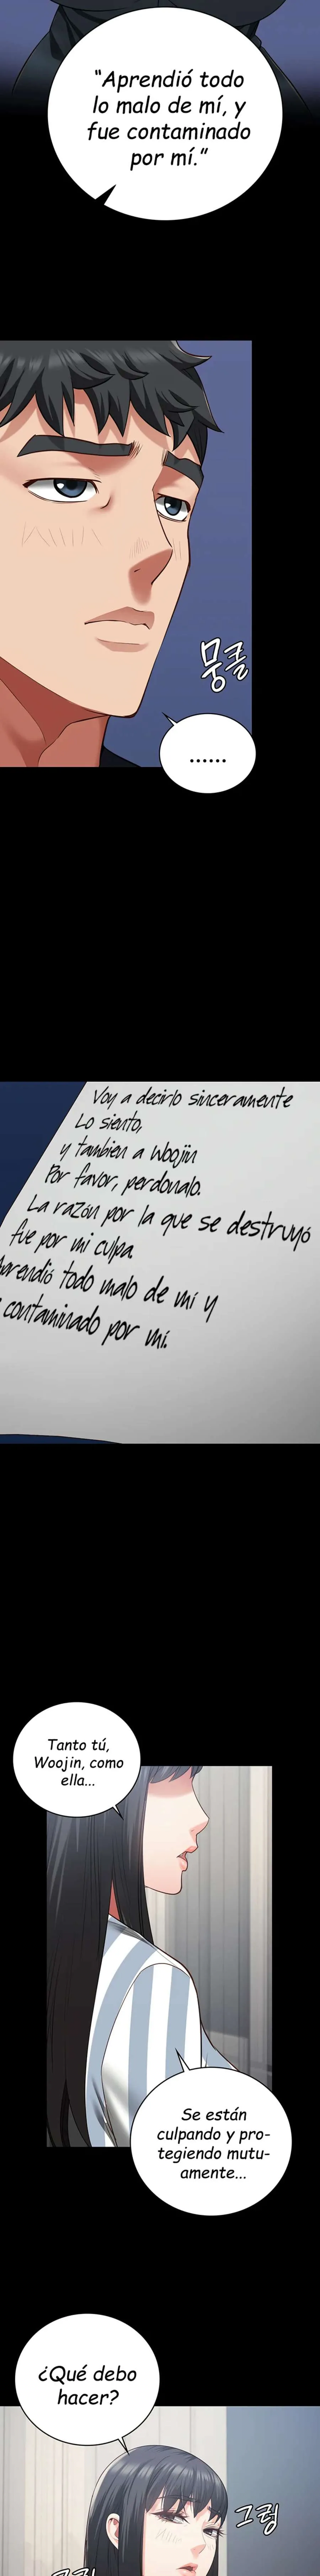 "Aprendió todo
lo malo de mí, y
fue contaminado
por mí."
뭉클
......
Voy a decirlo sinceramente
Lo siento,
y tambien a Woojin
Por favor, perdonalo.
La razón por la que se destruyó
fue por mi culpa.
Aprendió todo malo de mí y
contaminado por mí.
Tanto tú,
Woojin, como
ella...
Se están
culpando y pro-
tegiendo mutu-
amente...
¿Qué debo
hacer?
그렁